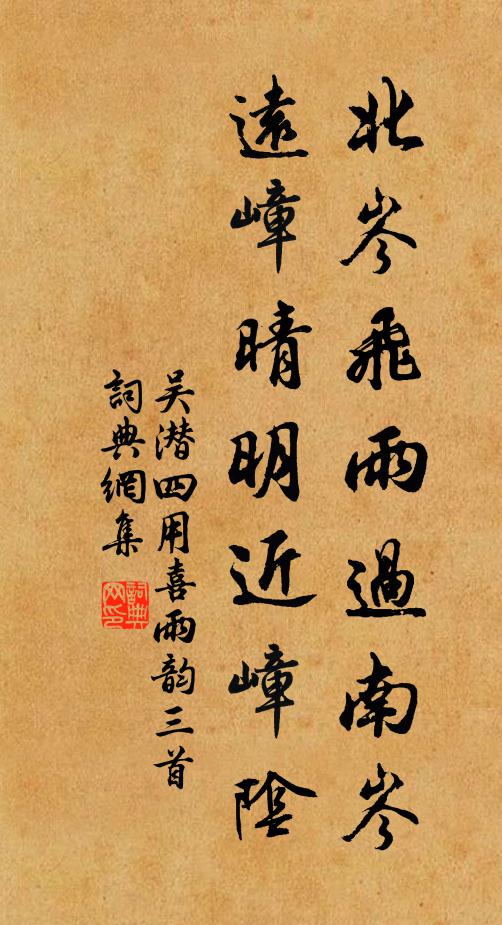 北岑飛雨過南岑
遠嶂晴明近嶂陰
吴潜四用喜雨韵三首
詞典網集
詞典網印